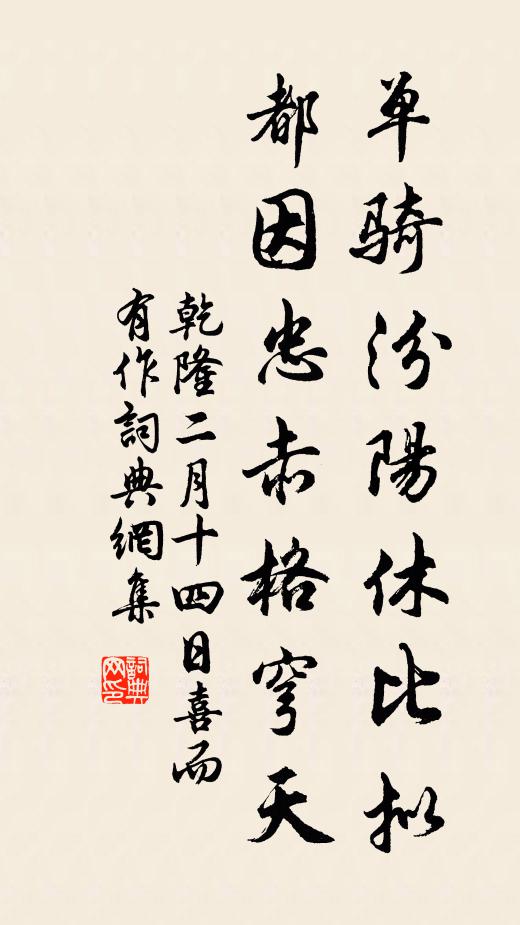 单骑汾陽休比拟
都因忠赤格穹天
乾隆二月十四日喜而
有作詞典網集
詞典
网印